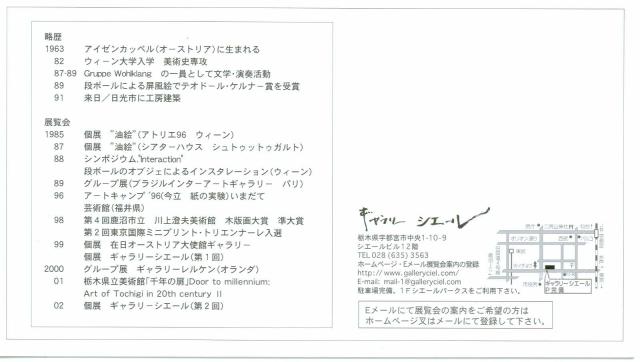 略歴
1963 アイゼンカッペル(オーストリア)に生まれる
82 ウィーン大学入学 美術史専攻
87-89 Gruppe Wohlklang の一員として文学・演奏活動
89 段ボールによる屏風絵でテオドール・ケルナー賞を受賞
91 来日/日光市に工房建築
展覧会
1985 個展 "油絵"(アトリエ96 ウィーン)
87 個展 "油絵"(シアターハウス シュトゥットゥガルト)
88 シンポジウム,"Interaction"
段ボールのオブジェによるインスタレーション(ウィーン)
89 グループ展(ブラジルインターアートギャラリー パリ)
96 アートキャンプ '96(今立 紙の実験)いまだて
芸術館(福井県)
98 第4回鹿沼市立 川上澄夫美術館 木版画大賞 準大賞
第2回東京国際ミニプリント・トリエンナーレ入選
99 個展 在日オーストリア大使館ギャラリー
個展 ギャラリーシエール(第1回)
2000 グループ展 ギャラリーレルケン(オランダ)
01 栃木県立美術館「千年の扉」Door to millennium;
Art of Tochigi in 20th century Ⅱ
02 個展 ギャラリーシエール(第2回)
ギャラリー シエール
栃木県宇都宮市中央1-10-9
シエールビル12階
TEL 028 (635) 3563
ホームページ・Eメール展覧会案内の登録
http://www.galleryciel.com/
E-mail: mail-1@galleryciel.com
駐車場完備。1Fシエールパークスをご利用下さい。
ギャラリーシエール
P完備
Eメールにて展覧会の案内をご希望の方は
ホームページ又はメールにて登録して下さい。